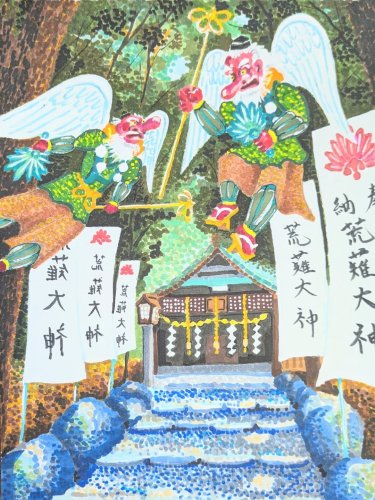 納
荒薙大神
荒薙大神
荒薙大神
荒薙大神
薙大神